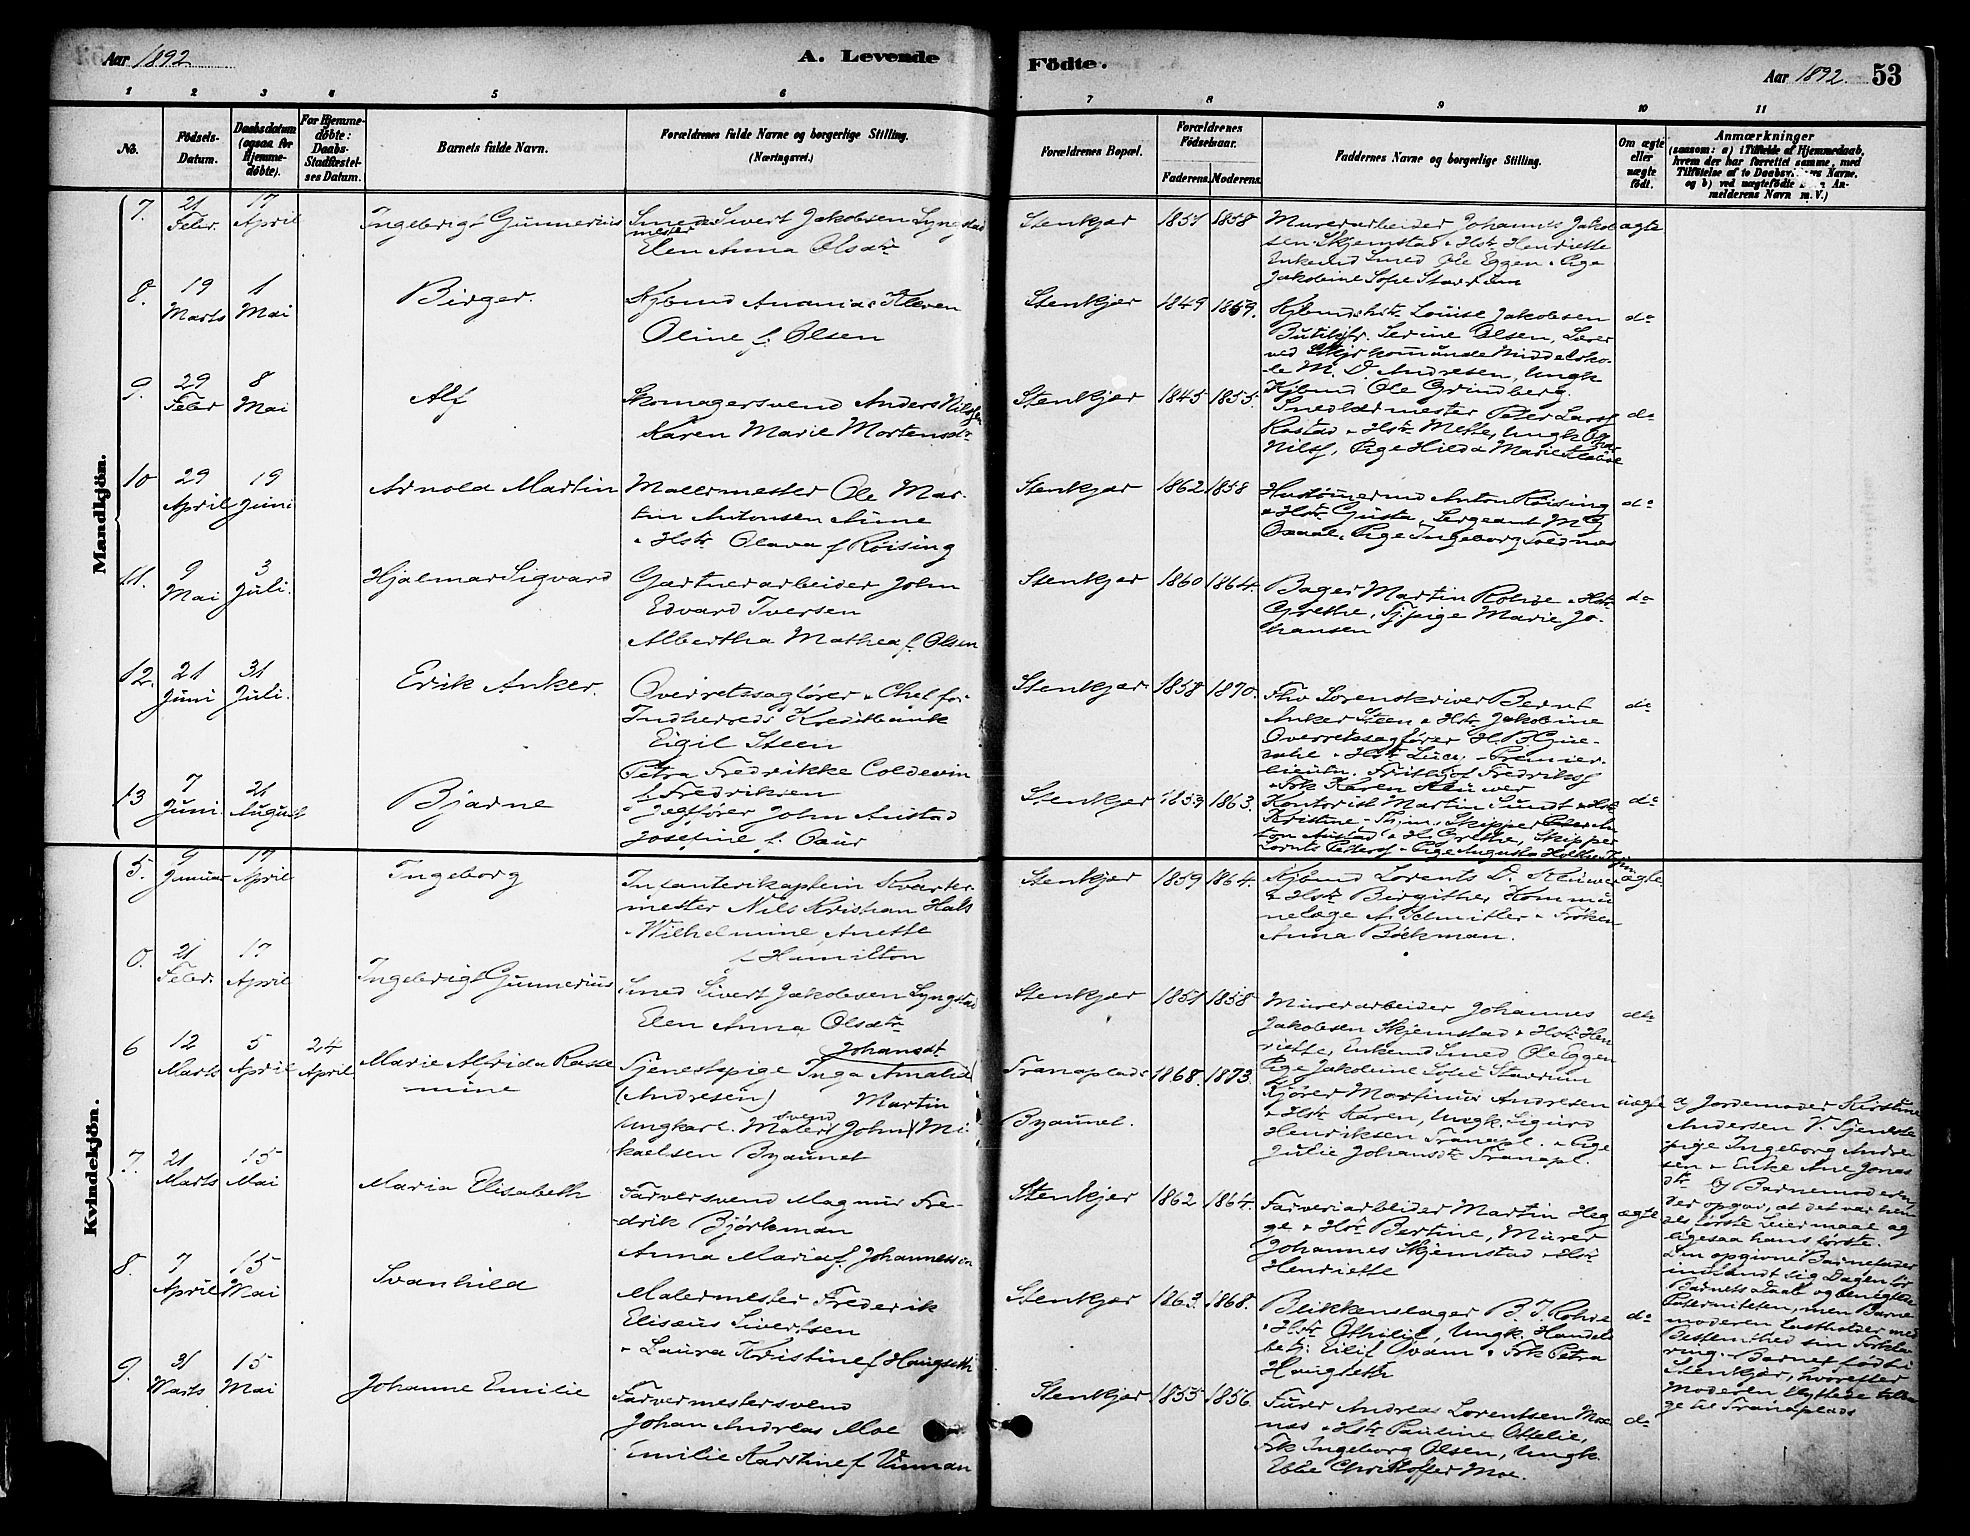 Aar 1892
A. Levende
Födte.
Aar 1892. 53
1 2 3 4 5 6 7 8 9 10 11
No.
Födsels-Datum.
Daabsdatum (ogsaa for Hjemme-döbte).
For Hjemme-döbte: Daabs-Stadfæstel-ses Datum.
Barnets fulde Navn.
Forældrenes fulde Navne og borgerlige Stilling. (Næringsvei.)
Forældrenes Bopæl.
Forældrenes Födselsaar.
Faderens. Moderens.
Faddernes Navne og borgerlige Stilling.
Om ægte eller uægte födt.
Anmærkninger
(saasom: a) i Tilfælde af Hjemmedaab, hvem der har forrettet samme, med
Tilföielse af to Daabsvidners Navne.
og b) ved uægtefödte
melderens Navn m. V.)
Mandkjön.
7. 21 Febr. 17 April Ingebrigt Gunnerius
Smed Sivert Jakobsen Lyngstad
mester
Elen Anna Olsdtr
Stenkjær 1851 1858
Murerarbeider Johannes Jakob
sen Skjemstad & Hstr Henriette
Enkemd Smed Ole Eggen, Pige
Jakobine Sofie Starrum
ægte
8. 19 Marts 1 Mai Birger.
Kjbmd Ananias Kleven
Oline f. Olsen
Stenkjær 1849 1859.
Kjbmdshstr Louise Jakobsen
Butikfr. Serine Olsen, Lærer
ved Stkjr kommunde Middelsko-
le M. D. Andresen, Ungk
Kjbmd Ole Grindberg.
do
9. 29 Febr 8 Mai Alf
Skomagersvend Anders Nilssen
Karen Marie Mortensdtr
Stenkjær 1845 1855.
Snedkermester Peter Larss
Rostad & Hstr Mette, Ungk
Nilss, Pige Hilda Marie
do
10 29 April 19 Juni Arnold Martin
Malermester Ole Mar-
tin Antonsen Aune
& Hstr Olava f Røising
Stenkjær 1862 1858
Hustømmermd Anton Røising
& Hstr Gusta, Sergeant M
Oxaal, Pige Ingeborg
do
11. 9 Mai 3 Juli. Hjalmar Sigvard
Gartnerarbeider John
Edvard Iversen
Albertha Mathea f. Olsen
Stenkjær 1860 1864.
Bager Martin Rohde & Hstr
Grethe, Tjpige Marie Jo-
hansen
do
12. 21 Juni 31 Juli. Erik Anker.
Overretssagfører & Chef for
Indherreds Kreditbank
Eigil Steen
Petra Fredrikke Coldevin
f Fredriksen
Stenkjær 1858 1870.
Fhv Sorenskriver Bernt
Anker Steen & Hstr Jakobine
Overretssagfører H. B Gul-
dahl & Hstr Lucie, Premier
lieutn. Frithjof Fredriks
& Frk Karen Klüwer
do
13 7 Juni 21 August Bjarne
Jegtfører John Austad
Josefine f. Oaur
Stenkjær 1859 1863.
Kontorist Martin Sundt & Hstr
Kristine, Skipper Peter An
ton Austad & H. Grethe, Skipper
Lornts Petters & Pige Augusta
do
Kvindekjön.
5. 9 Januar 17 April Ingeborg
Infanterikaptein Kvarter
mester Nils Kristian Hals
& Wilhelmine Anette
f Hamilton
Stenkjær 1859 1864.
Kjbmd Lorents D. Klüwer
& Hstr Birgithe, Kommu
nelæge A. Schmitler & Frøken
Anna Bøckman.
ægte
0. 21 Febr. 17 April Ingebrigt Gunnerius
Smed Sivert Jakobsen Lyngstad
Elen Anna Olsdtr
Stenkjær 1851 1858
Murerarbeider Johannes
Jakobsen Skjemstad & Hstr Hen
riette, Enkemd Smed Ole Eggen
Pige Jakobine Sofie Starrum
do
6 12 Marts 5 April 24 April. Marie Alfrida Rasse
mine
Johansdt
Tjenestpige Inga Amalie
(Andresen) Martin
Ungkarl. Malersvend John Mi
kaelsen Byaunet
Tranaplads 1868. 1873.
Byaunet.
Kjører Martinus Andresen
& Hstr Karen, Ungk. Sigurd
Henriksen Tranapl. & Pige
Julie Johansdtr Tranapl.
uægte
a) Jordemoder Kirstine
Andersen V. Tjeneste
pige Ingeborg Andre
sen & Enke Ane Jonas
dtr b) Barnemoderen,
der opgav, at det var hen
des første Leiermaal og
ligesaa hans første.
Den opgivne Barnefader
indfandt sig Dagen før
Barnets Daab og benægtede
Paterniteten, men Barne
moderen fastholder med
Bestemthed sin Forkla
ring. Barnet født i
Stenkjær, hvorefter
Moderen flyttede tilba
ge til Tranaplads
7. 21 Marts 15 Mai Maria Elisabeth
Farversvend Magnus Fre-
drik Björkman
Anna Maria f. Johannesson
Stenkjær 1862 1864.
Farveriarbeider Martin Heg
ge & Hstr Bertine, Murer
Johannes Skjemstad & Hstr
Henriette
ægte
8. 7 April 15 Mai Svanhild
Malermester Frederik
Elissus Sivertsen
& Laura Kristine f Haugseth
Stenkjær 1863. 1868.
Blikkenslager B. J. Rohde
& Hstr Othilie, Ungk. Handels
betj. Eilif Qvam & Frk Petra
Haugseth
do
9. 31 Marts 15 Mai Johanne Emilie
Farvermestersvend
Johan Andreas Moe
Emilie Karstine f Vinnan
Stenkjær 1855 1856.
Furer Andreas Lorentsen Moe
næs & Hstr Pauline Ottelie,
Frk Ingeborg Olsen, Ungk.
Ebbe Christoffer Moe.
do